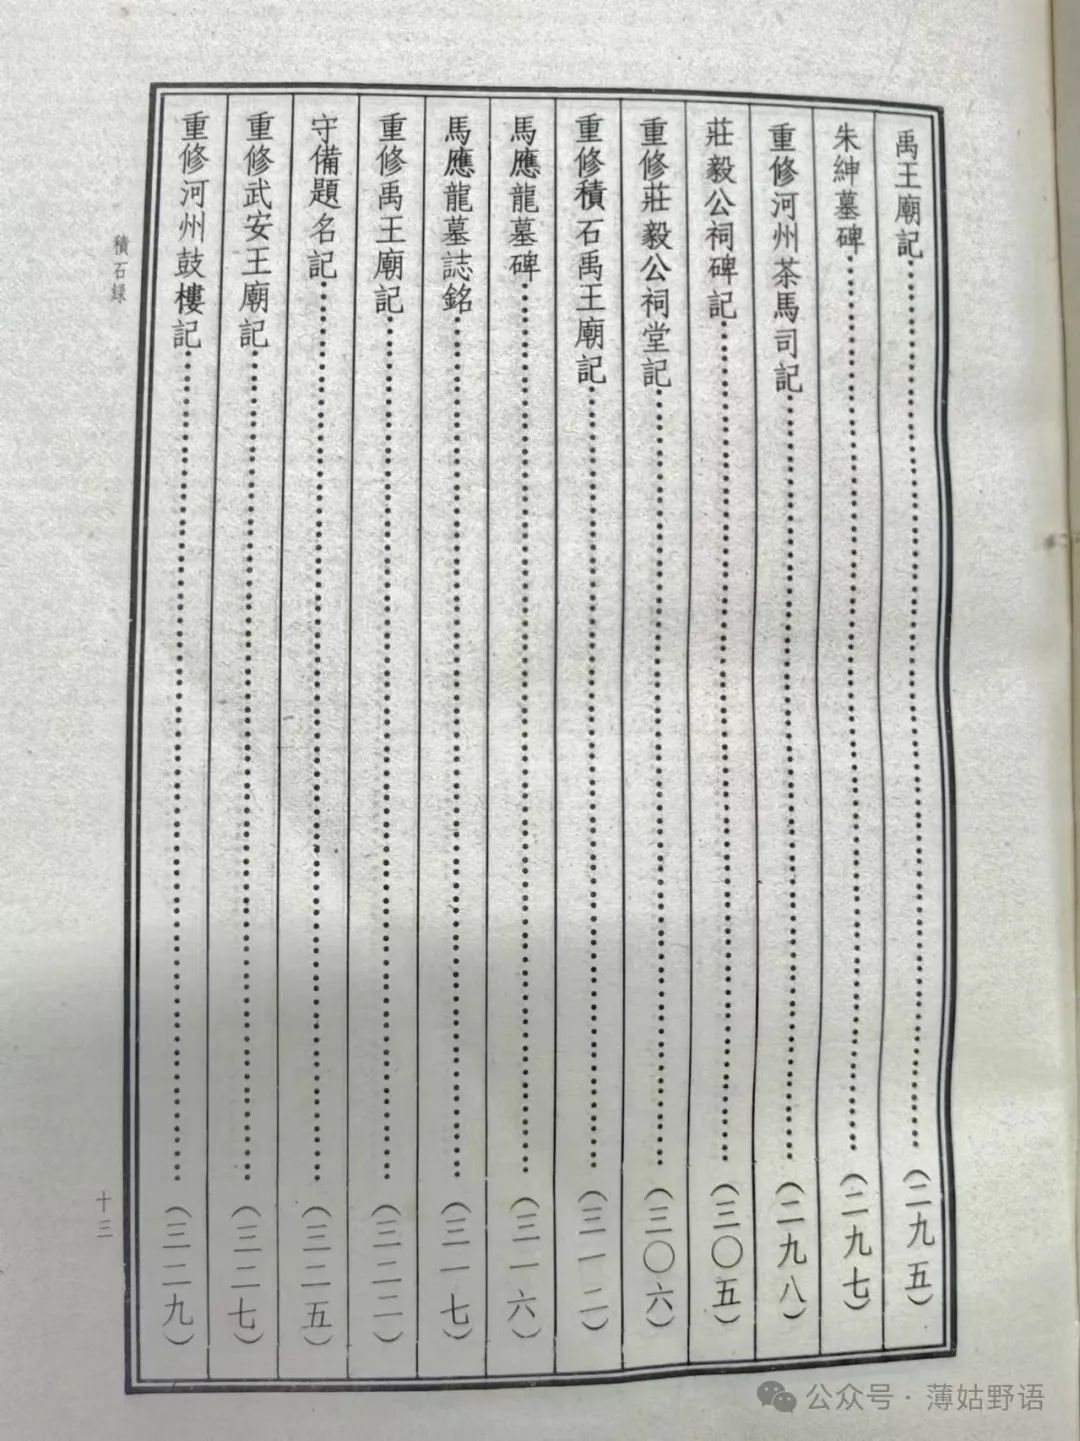 禹王廟記（二九五）
朱紳墓碑（二九七）
重修河州茶馬司記（二九八）
莊毅公祠碑記（三〇五）
重修莊毅公祠堂記（三〇六）
重修積石禹王廟記（三一二）
馬應龍墓碑（三一六）
馬應龍墓誌銘（三一七）
重修禹王廟記（三二二）
守備題名記（三二五）
重修武安王廟記（三二七）
重修河州鼓樓記（三二九）
積石録
十三
公众号·薄姑野语